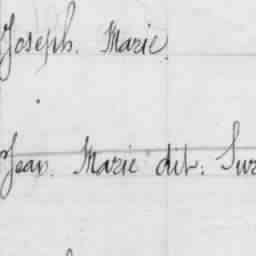 Joseph. Marie.
Jean. Marie dit: